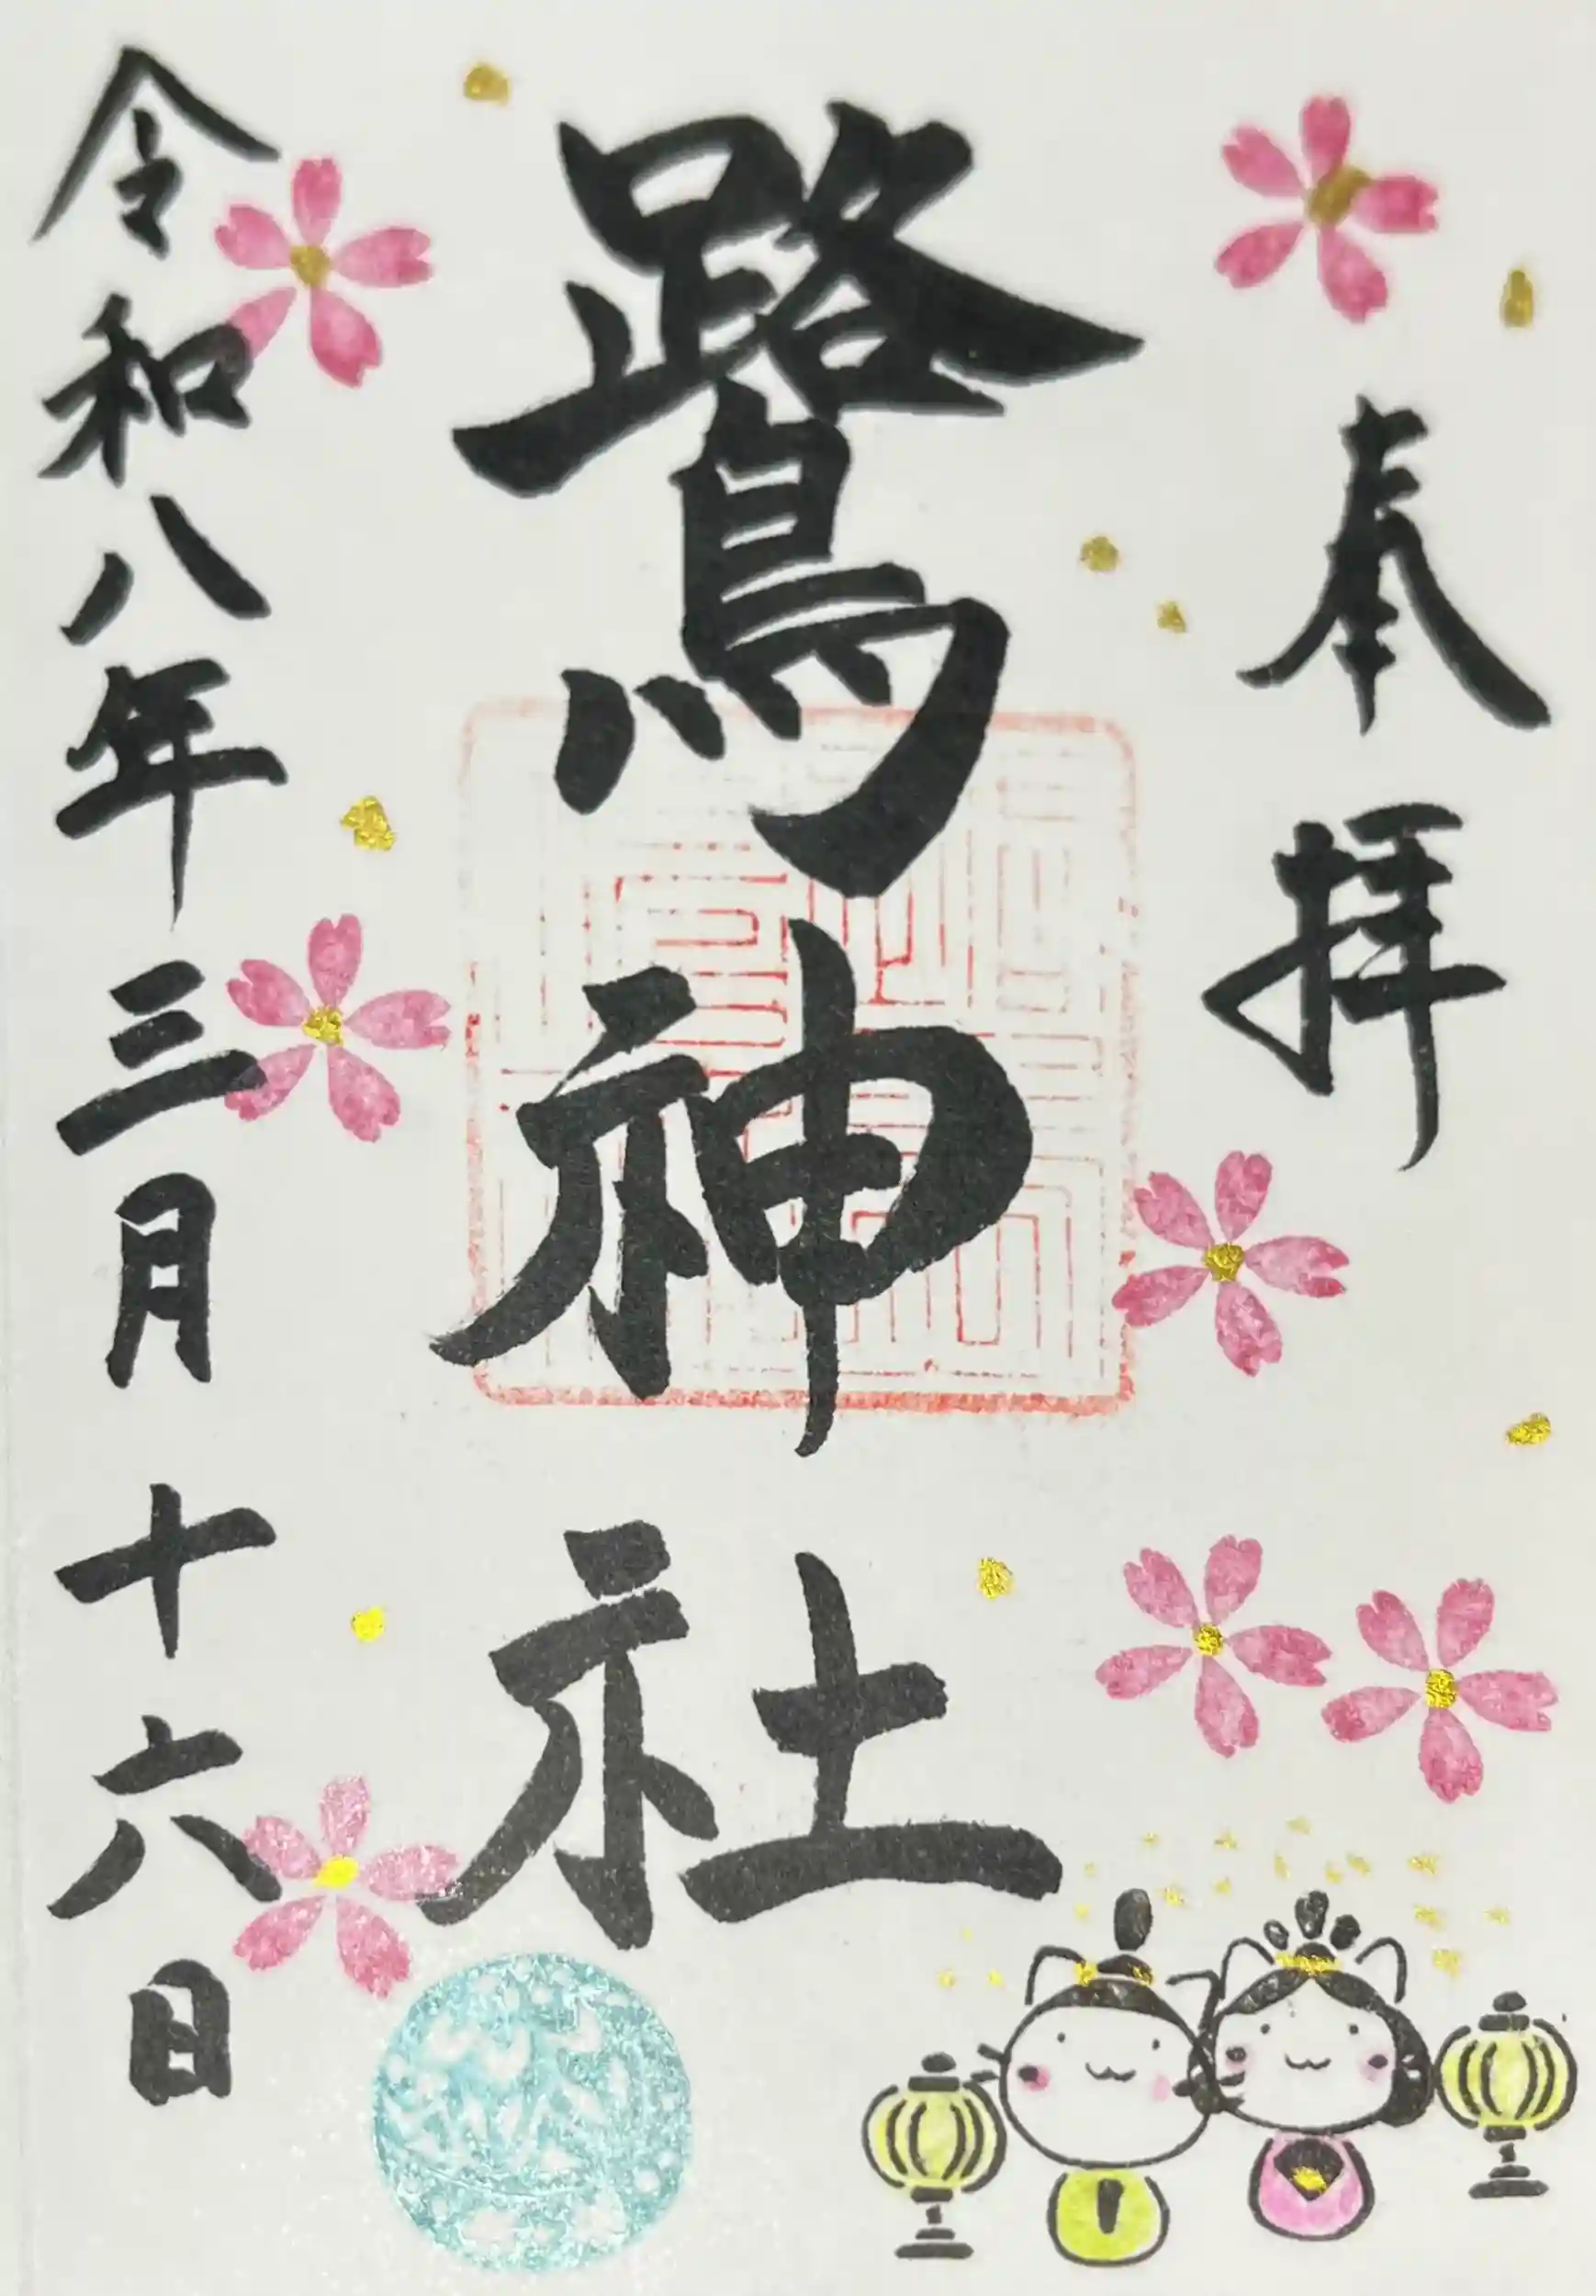 奉拝
鷺神社
令和八年三月十六日